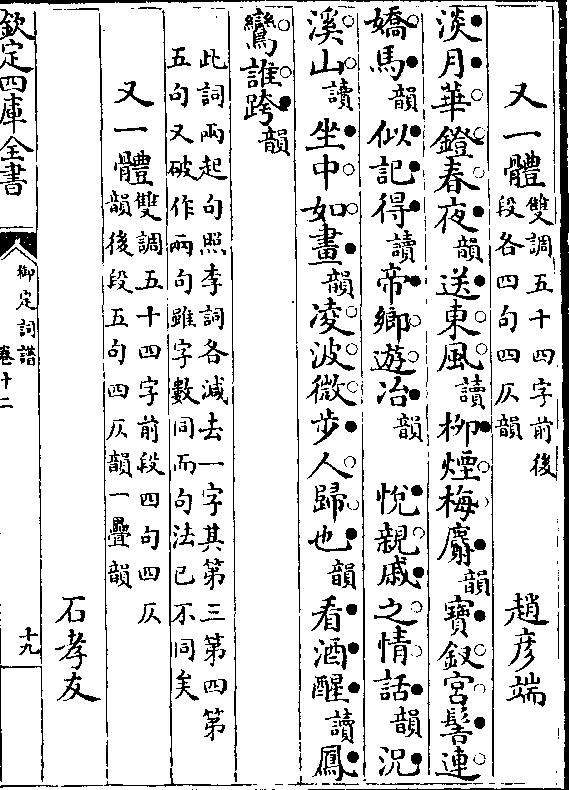 又一體雙調五十四字前後段各四句四仄韻 趙彥端
淡月華鐙春夜韻送東風讀柳煙梅麝韻寶釵宮髻連
嬌馬韻似記得讀帝鄉遊冶韻 悅親戚之情話韻況
溪山讀坐中如畫韻凌波微步人歸也韻看酒醒讀鳳
鸞誰跨韻
此詞兩起句照李詞各減去一字其第三第四第
五句又破作兩句雖字數同而句法已不同矣
又一體雙調五十四字前段四句四仄韻後段五句四仄韻一疊韻
石孝友
欽定四庫全書
御定詞譜
卷十二
十九